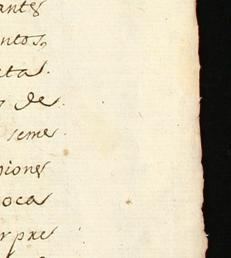 antes
ntos,
cta.
de
seme
iones
oca
rpre